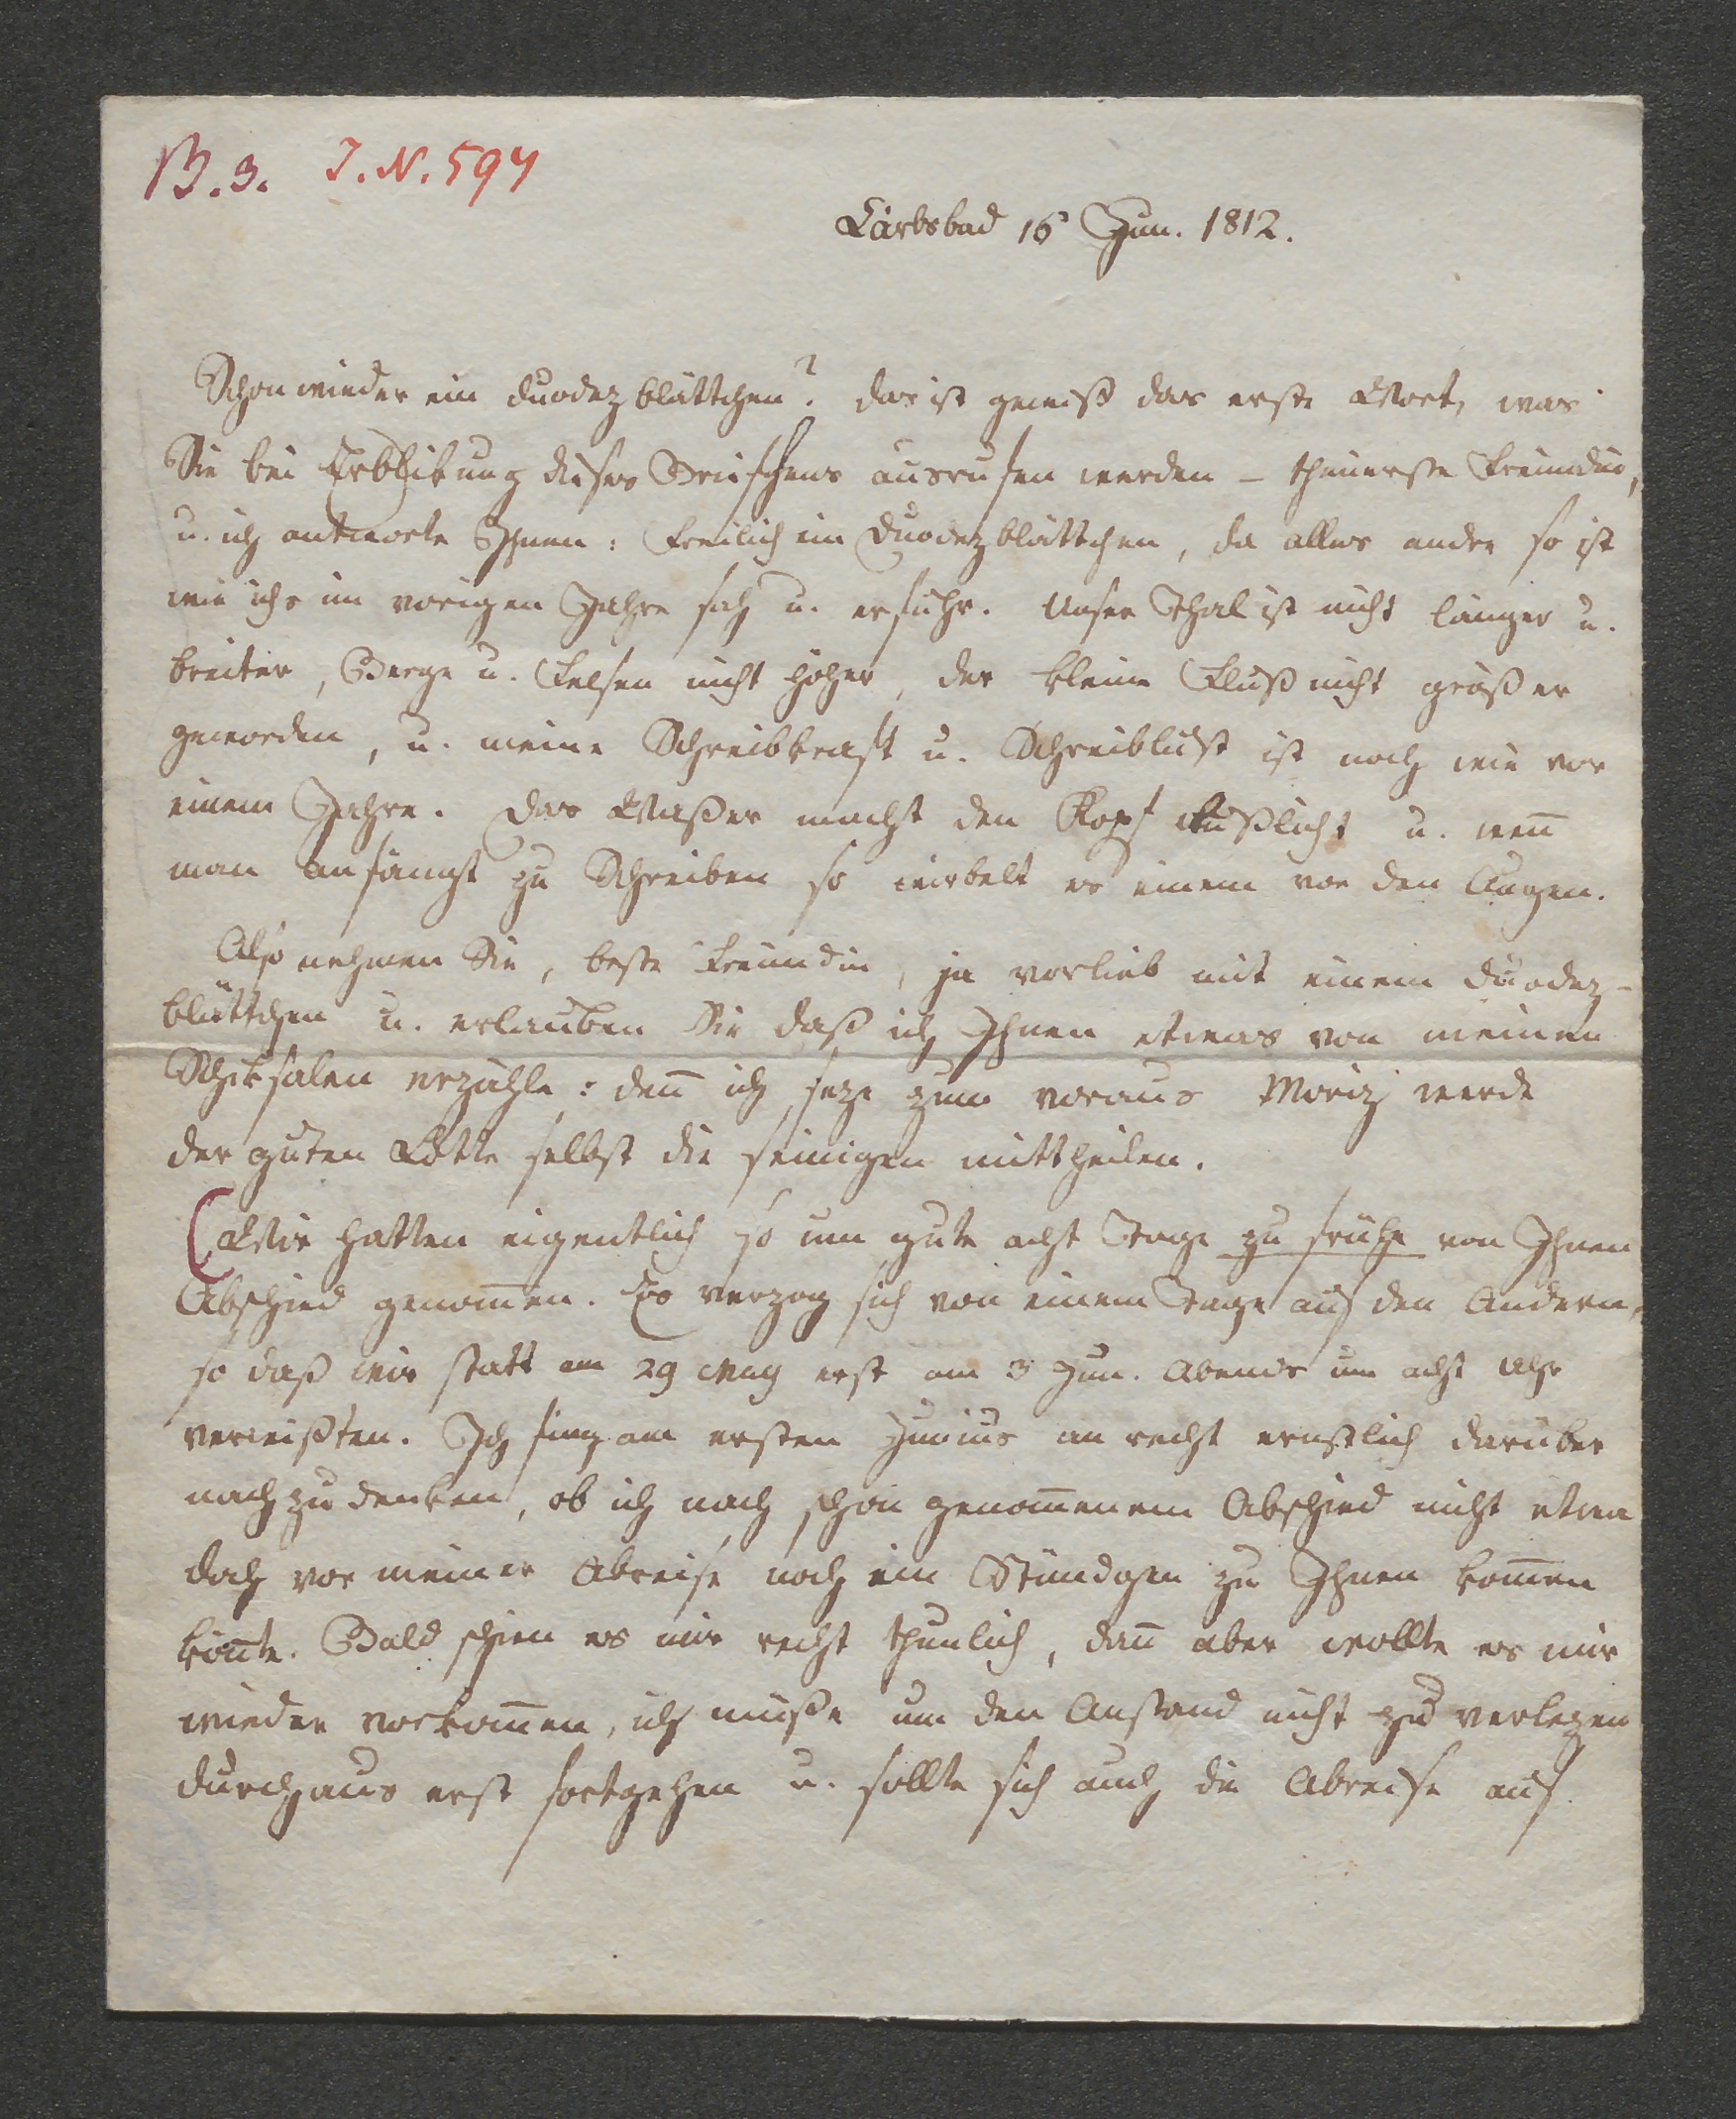 B. 3. I. N. 594
Carlsbad 16 Jun. 1812.
Schon wieder ein Duodezblättchen? das ist gewiß das erste Wort, was
Sie bei Erblikung dieses Briefchens ausrufen werden – theuerste Freundin,
u. ich antworte Ihnen: freilich ein Duodezblättchen, da alles andre so ist
wie ichs im vorigen Jahre sah u. erfuhr. Unser Thal ist nicht länger u.
breiter, Berge u. Felsen nicht höher, der kleine Fluß nicht größer
geworden, u. meine Schreibkraft u. Schreiblust ist noch wie vor
einem Jahre. Das Waßer macht den Kopf u. weñ
man anfängt zu Schreiben so wirbelt es einem vor den Augen.
Also nehmen Sie, beste Freundin, ja vorlieb mit einem Duodez-
blättchen u. erlauben Sie daß ich Ihnen etwas von meinen
Schiksalen erzähle: deñ ich seze zum voraus Moriz werde
der guten Lotte selbst die seinigen mittheilen.
Wir hatten eigentlich so um gute acht Tage zu frühe von Ihnen
Abschied genom̃en. Es verzog sich von einem Tage auf den Andern,
so daß wir statt am 29 May erst am 3 Jun. Abends um acht Uhr
verreißten. Ich fing am ersten Junius an recht ernstlich darüber
nachzudenken, ob ich nach schon genom̃enem Abschied nicht etwa
doch vor meiner Abreise noch ein Stündgen zu Ihnen kom̃en
köñte. Bald schien es mir recht thunlich, dañ aber wollte es mir
wieder vorkom̃en, ich müße um den Anstand nicht zu verlezen
durchaus erst fortgehen u. sollte sich auch die Abreise auf